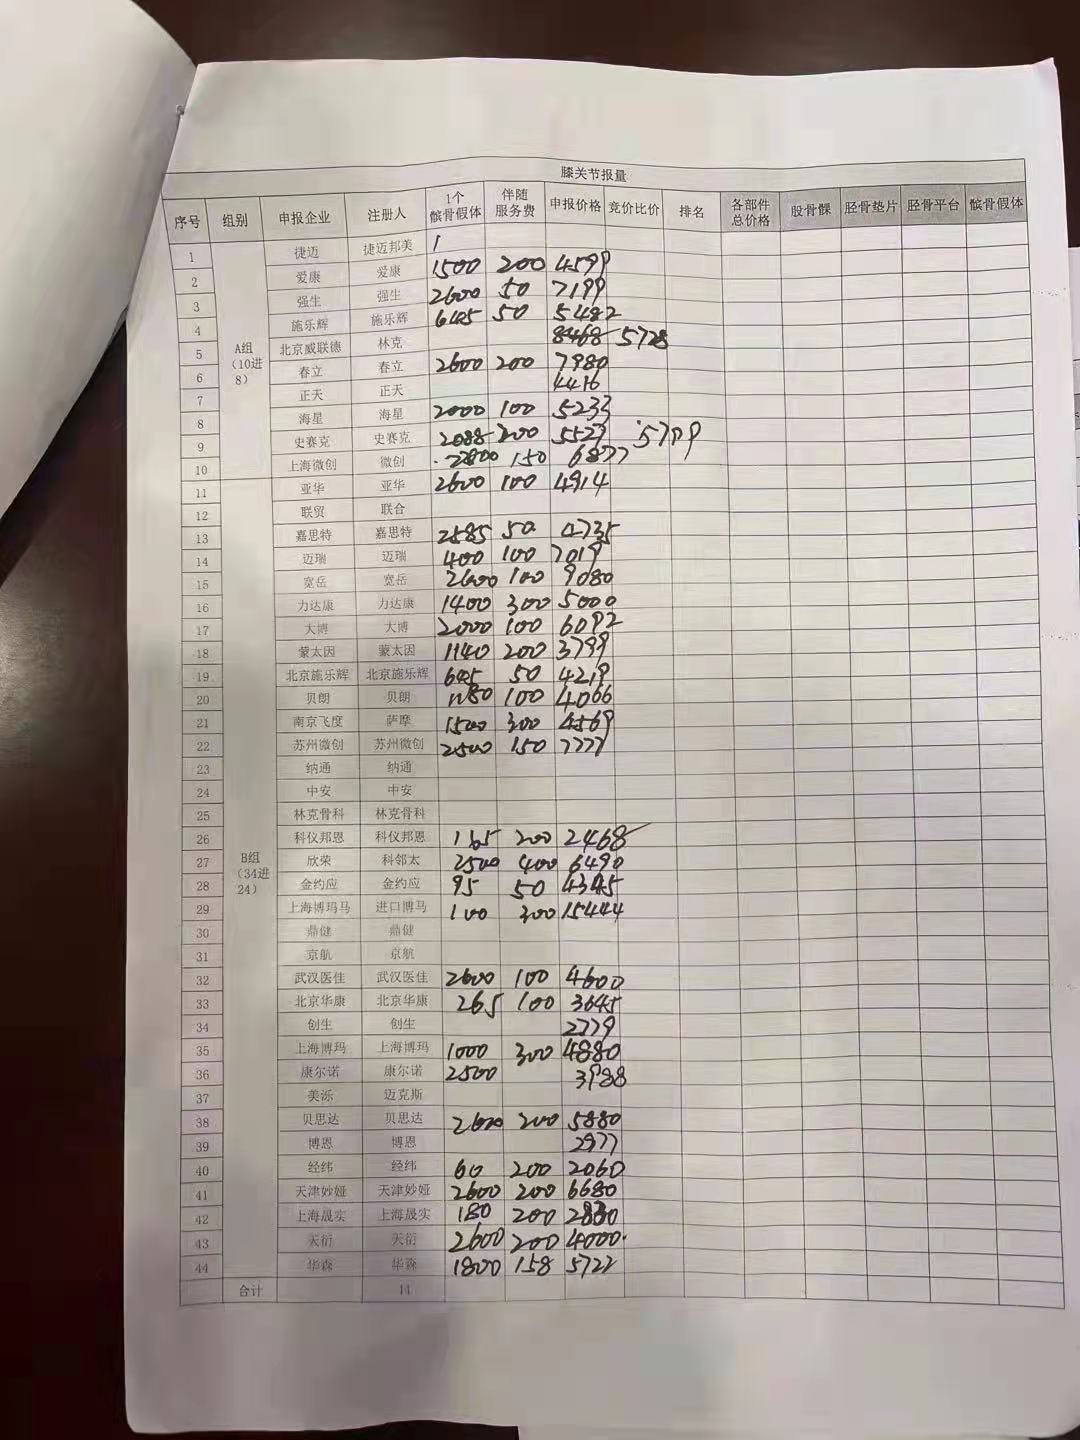 膝关节报量
序号 组别 申报企业 注册人 1个髌骨假体 伴随服务费 申报价格 竞价比价 排名 各部件总价格 股骨髁 胫骨垫片 胫骨平台 髌骨假体
A组（10进8）
1 捷迈 捷迈邦美
2 爱康 爱康 1500 200 4599
3 强生 强生 2600 50 7199
4 施乐辉 施乐辉 645 50 5482
5 北京威联德 林克 8468 5728
6 春立 春立 2600 200 7980
7 正天 正天 4416
8 海星 海星 2000 100 5233
9 史赛克 史赛克 2088 200 5527 5799
10 上海微创 微创 2800 150 6877
B组（34进24）
11 亚华 亚华 2600 100 4914
12 联贸 联合
13 嘉思特 嘉思特 2585 50 4735
14 迈瑞 迈瑞 400 100 7019
15 宽岳 宽岳 2600 100 9080
16 力达康 力达康 1400 300 5000
17 大博 大博 2000 100 6092
18 蒙太因 蒙太因 1140 200 3799
19 北京施乐辉 北京施乐辉 645 50 4219
20 贝朗 贝朗 1180 100 4066
21 南京飞度 萨摩 1500 300 4569
22 苏州微创 苏州微创 2500 150 7777
23 纳通 纳通
24 中安 中安
25 林克骨科 林克骨科
26 科仪邦恩 科仪邦恩 165 200 2468
27 欣荣 科邻太 2500 400 6490
28 金约应 金约应 95 50 4345
29 上海博玛马 进口博马 100 300 15444
30 鼎健 鼎健
31 京航 京航
32 武汉医佳 武汉医佳 2600 100 4600
33 北京华康 北京华康 265 100 3645
34 创生 创生 2779
35 上海博玛 上海博玛 1000 300 4880
36 康尔诺 康尔诺 2500 3988
37 美泺 迈克斯
38 贝思达 贝思达 2600 200 5880
39 博恩 博恩 2977
40 经纬 经纬 60 200 2060
41 天津妙娅 天津妙娅 2600 200 6680
42 上海晟实 上海晟实 180 200
43 天衍 天衍 2600 200 4000
44 华森 华森 1800 158 5722
合计 14